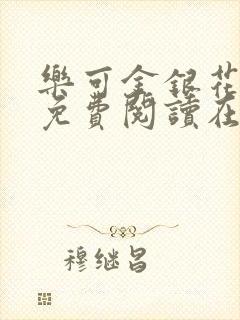 樂可金銀花
免費閱讀在
穆继昌